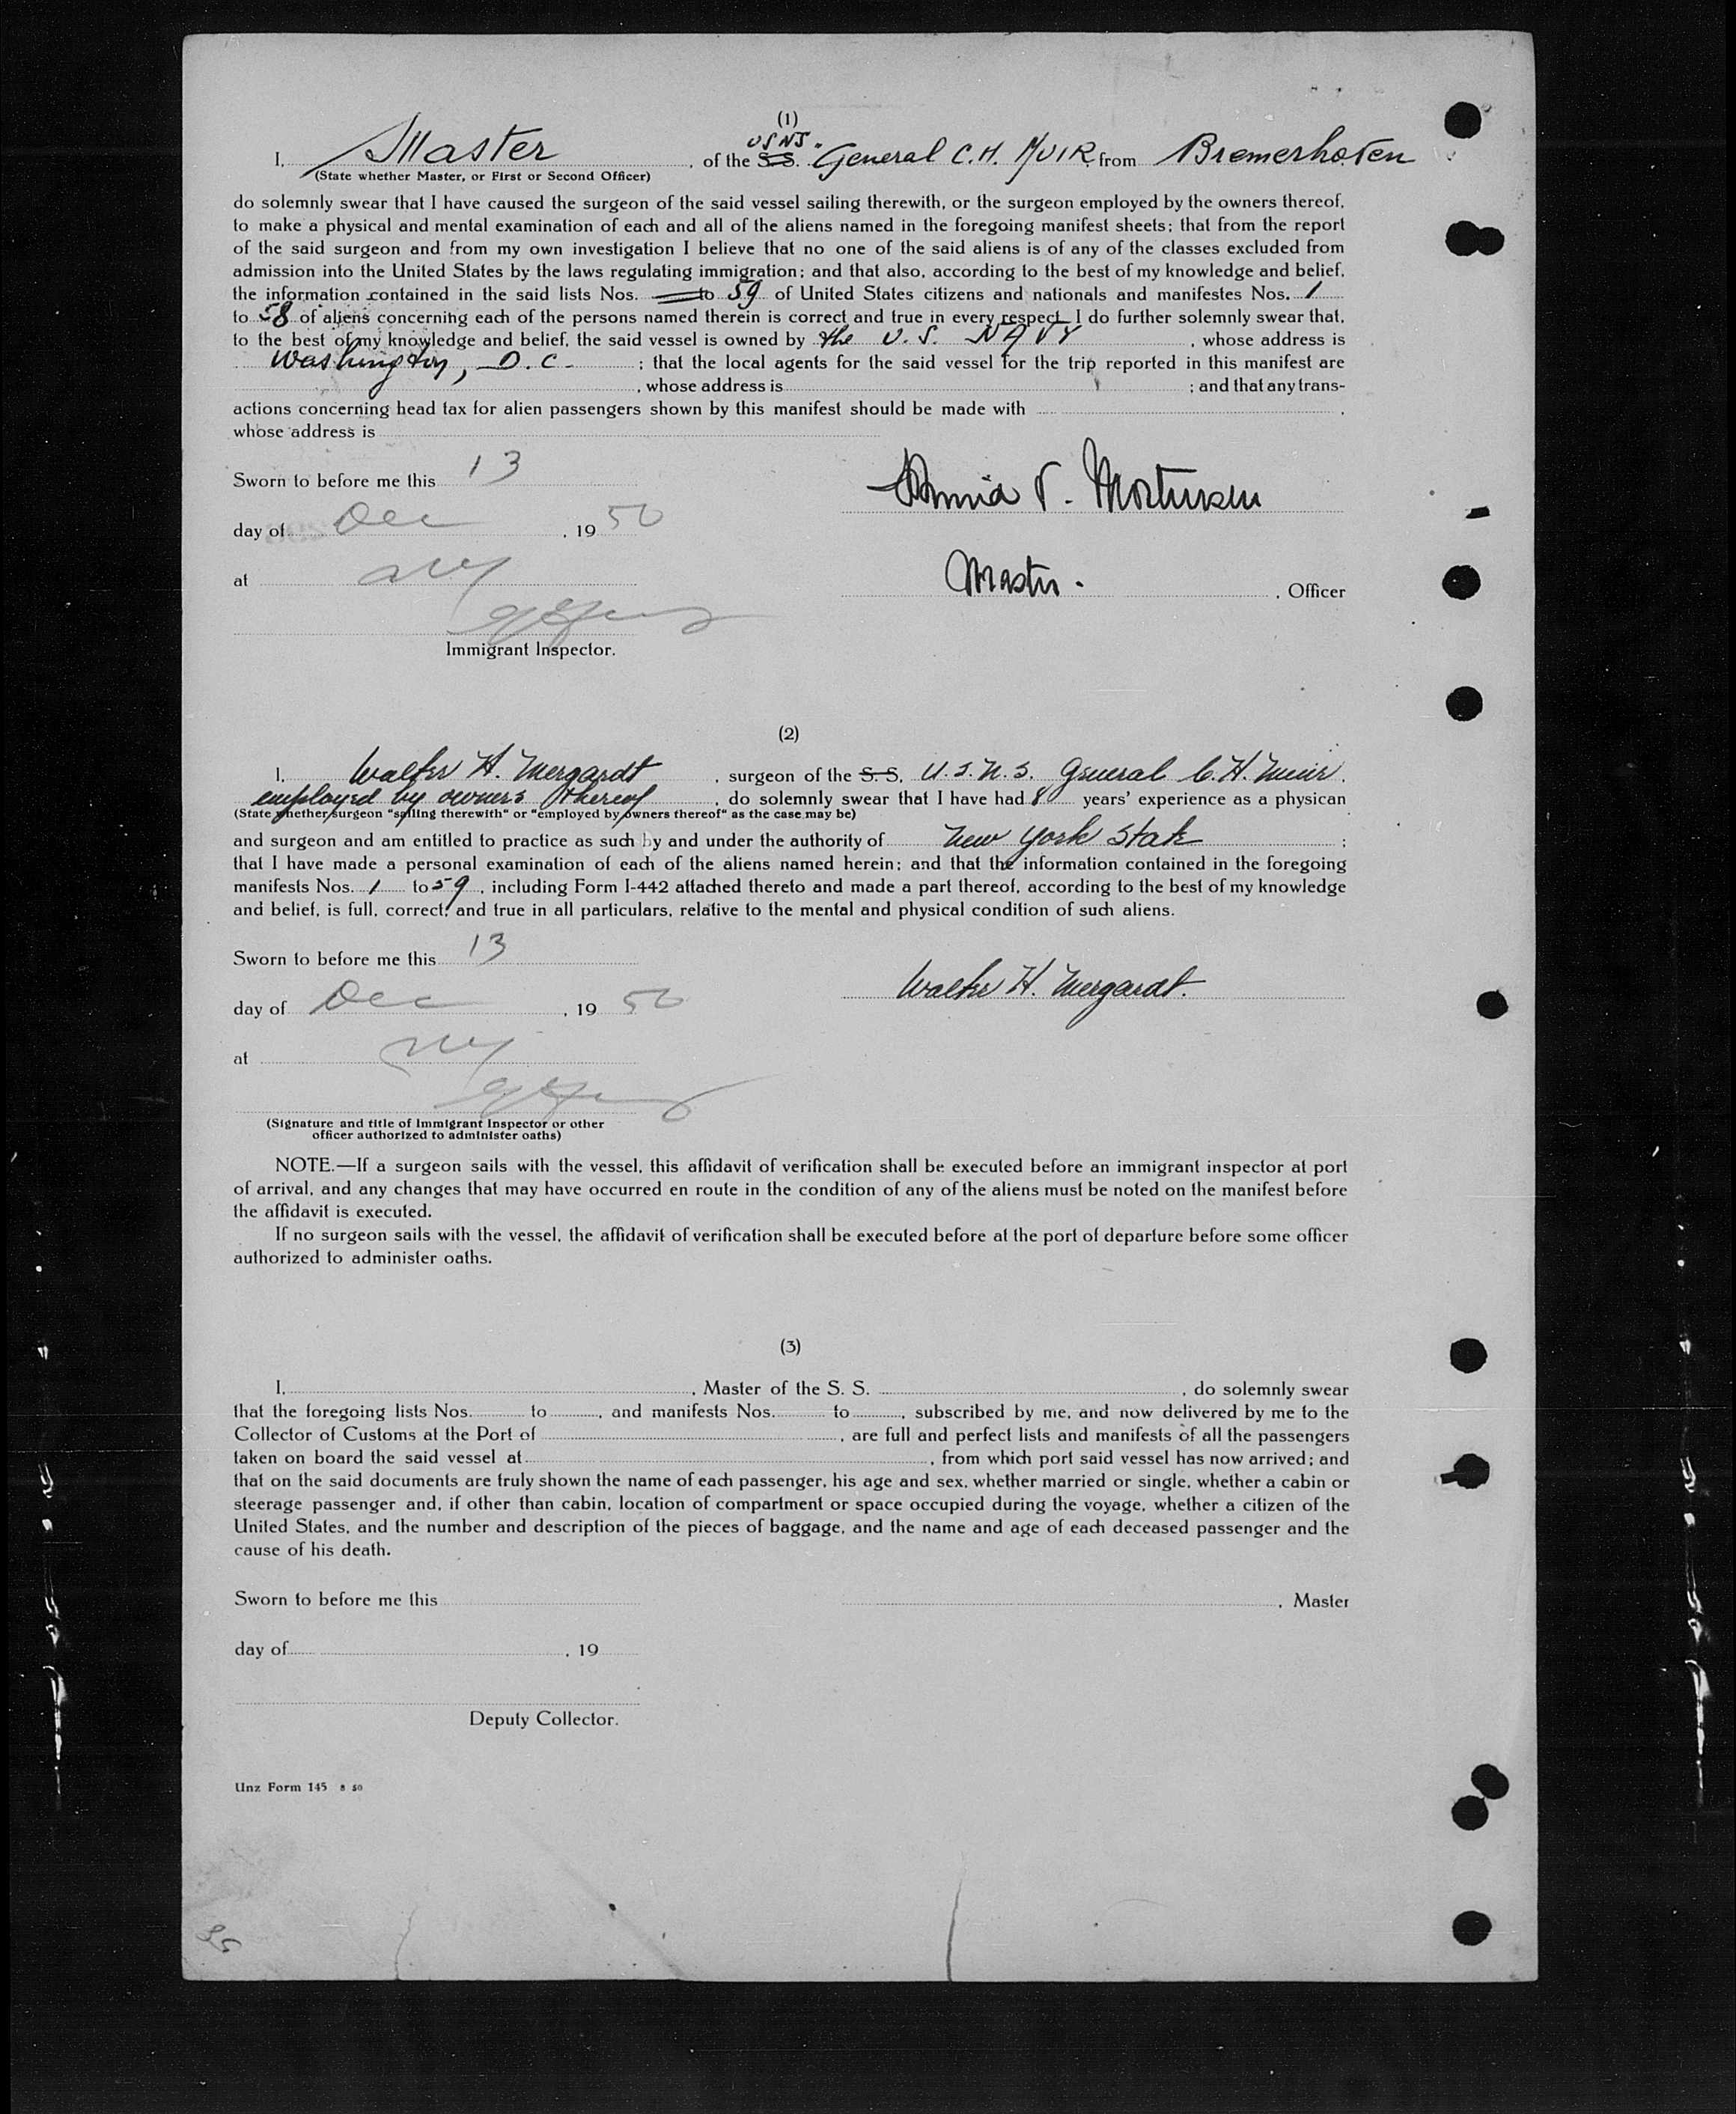 (1)
USNS.
I, Master, of the S.S. General C.H. MUIR from Bremerhafen
(State whether Master, or First or Second Officer)
do solemnly swear that I have caused the surgeon of the said vessel sailing therewith, or the surgeon employed by the owners thereof,
to make a physical and mental examination of each and all of the aliens named in the foregoing manifest sheets; that from the report
of the said surgeon and from my own investigation I believe that no one of the said aliens is of any of the classes excluded from
admission into the United States by the laws regulating immigration; and that also, according to the best of my knowledge and belief,
the information contained in the said lists Nos. — to 59 of United States citizens and nationals and manifestes Nos. 1
to 58 of aliens concerning each of the persons named therein is correct and true in every respect. I do further solemnly swear that,
to the best of my knowledge and belief, the said vessel is owned by the U. S. NAVY, whose address is
Washington, D.C. ; that the local agents for the said vessel for the trip reported in this manifest are
, whose address is ; and that any trans-
actions concerning head tax for alien passengers shown by this manifest should be made with ,
whose address is
Sworn to before me this 13
V. Mortensen
day of Dec, 19 50
at NY
Master. , Officer
Immigrant Inspector.
(2)
I, Walter H. Mergardt, surgeon of the S.S. U.S.N.S. General C.H. Muir,
employed by owners thereof, do solemnly swear that I have had 8 years' experience as a physican
(State whether surgeon "sailing therewith" or "employed by owners thereof" as the case may be)
and surgeon and am entitled to practice as such by and under the authority of New York State ;
that I have made a personal examination of each of the aliens named herein; and that the information contained in the foregoing
manifests Nos. 1 to 59, including Form I-442 attached thereto and made a part thereof, according to the best of my knowledge
and belief, is full, correct, and true in all particulars, relative to the mental and physical condition of such aliens.
Sworn to before me this 13
Walter H. Mergardt.
day of Dec, 19 50
at NY
(Signature and title of Immigrant Inspector or other
officer authorized to administer oaths)
NOTE.—If a surgeon sails with the vessel, this affidavit of verification shall be executed before an immigrant inspector at port
of arrival, and any changes that may have occurred en route in the condition of any of the aliens must be noted on the manifest before
the affidavit is executed.
If no surgeon sails with the vessel, the affidavit of verification shall be executed before at the port of departure before some officer
authorized to administer oaths.
(3)
I, , Master of the S. S. , do solemnly swear
that the foregoing lists Nos. to , and manifests Nos. to , subscribed by me, and now delivered by me to the
Collector of Customs at the Port of , are full and perfect lists and manifests of all the passengers
taken on board the said vessel at , from which port said vessel has now arrived; and
that on the said documents are truly shown the name of each passenger, his age and sex, whether married or single, whether a cabin or
steerage passenger and, if other than cabin, location of compartment or space occupied during the voyage, whether a citizen of the
United States, and the number and description of the pieces of baggage, and the name and age of each deceased passenger and the
cause of his death.
Sworn to before me this , Master
day of , 19
Deputy Collector.
Unz Form 145 8 50